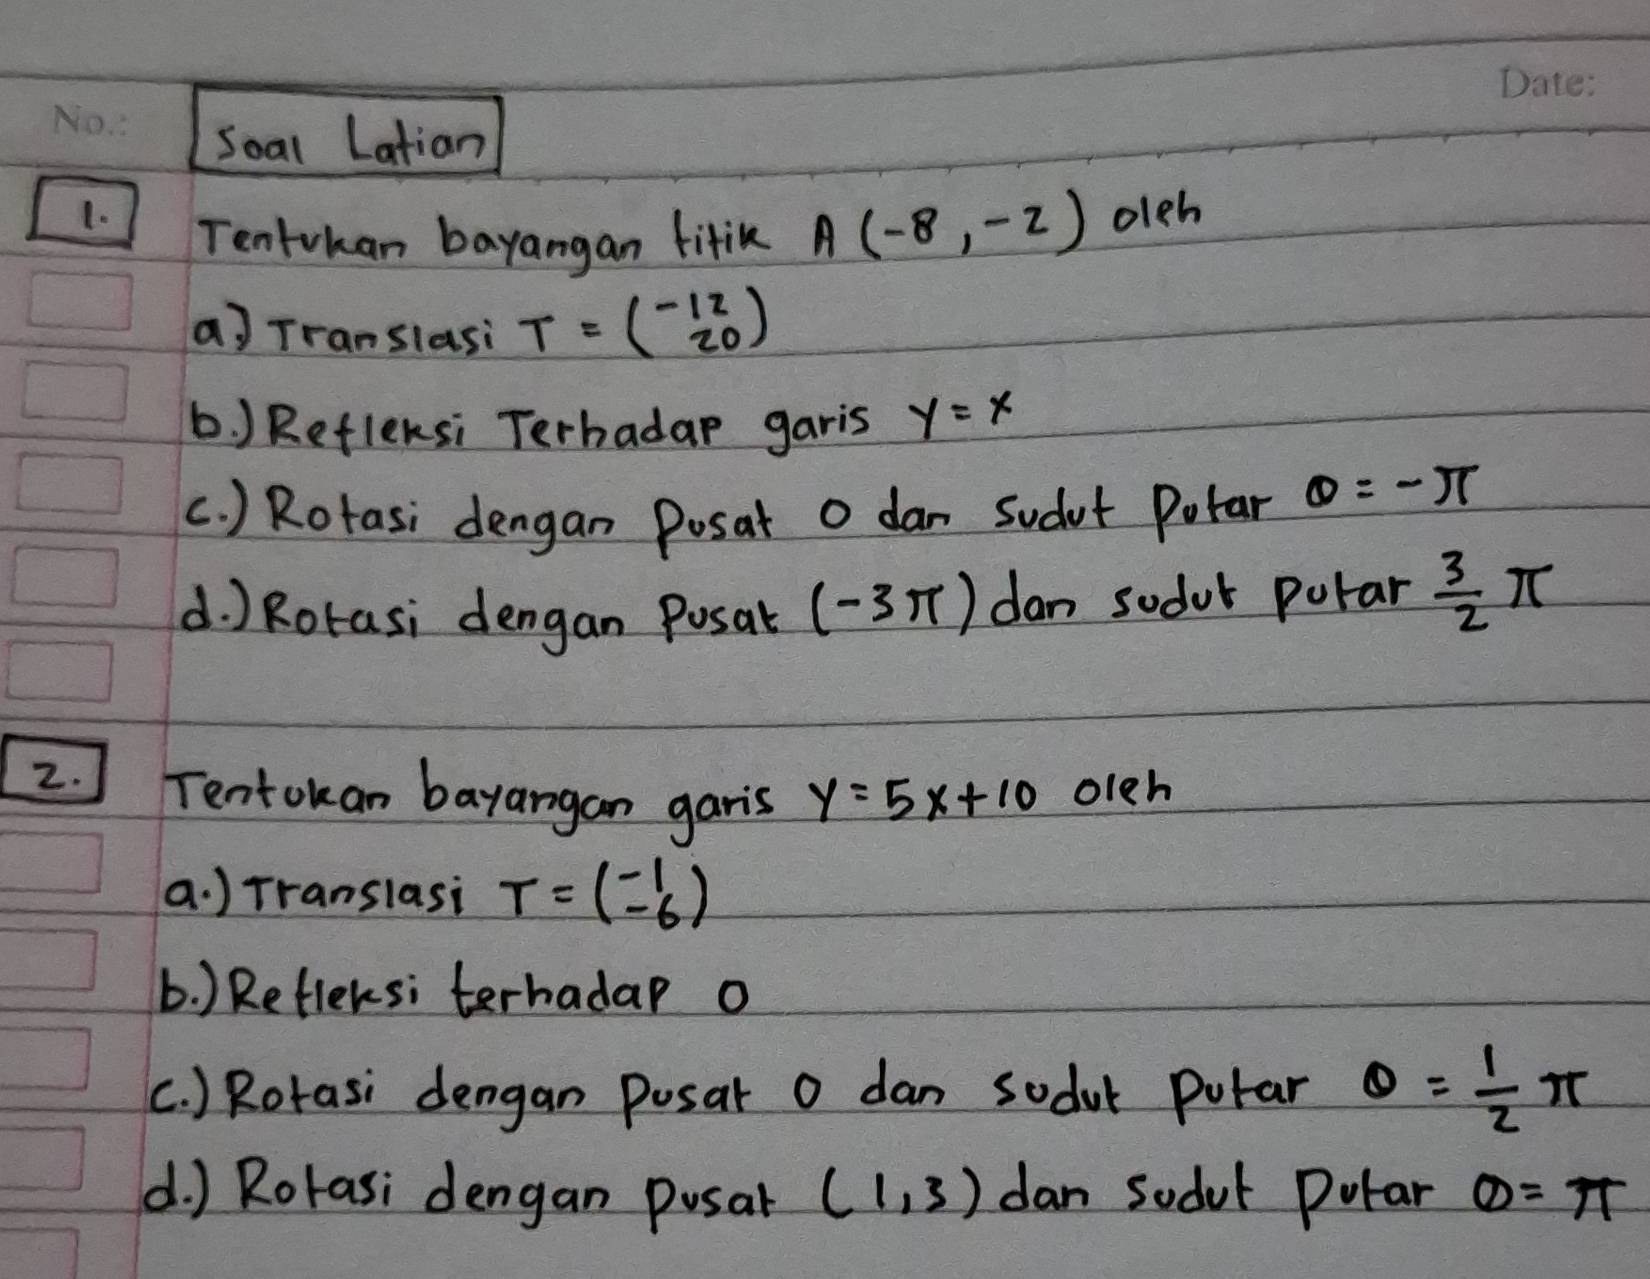 No.:
Date:
Soal Latian
1. Tentukan bayangan titik A (-8, -2) oleh
a.) Translasi T = (-12 20)
b.) Refleksi Terhadap garis y = x
c.) Rotasi dengan Pusat O dan Sudut Putar θ = -π
d.) Rotasi dengan Pusat (-3π) dan sudut putar 3/2 π
2. Tentukan bayangan garis y = 5x+10 oleh
a.) Translasi T = (-1 -6)
b.) Refleksi terhadap O
c.) Rotasi dengan Pusat O dan sudut Putar θ = 1/2 π
d.) Rotasi dengan pusat (1,3) dan sudut Putar θ = π